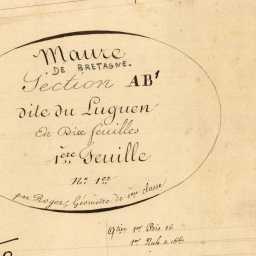 Maure
DE BRETAGNE.
Section AB¹
dite du Luguen
En Dix feuilles
1ère Feuille
N.º 1er
par Roger, Géomètre de 1ère classe
1er Bis
1er